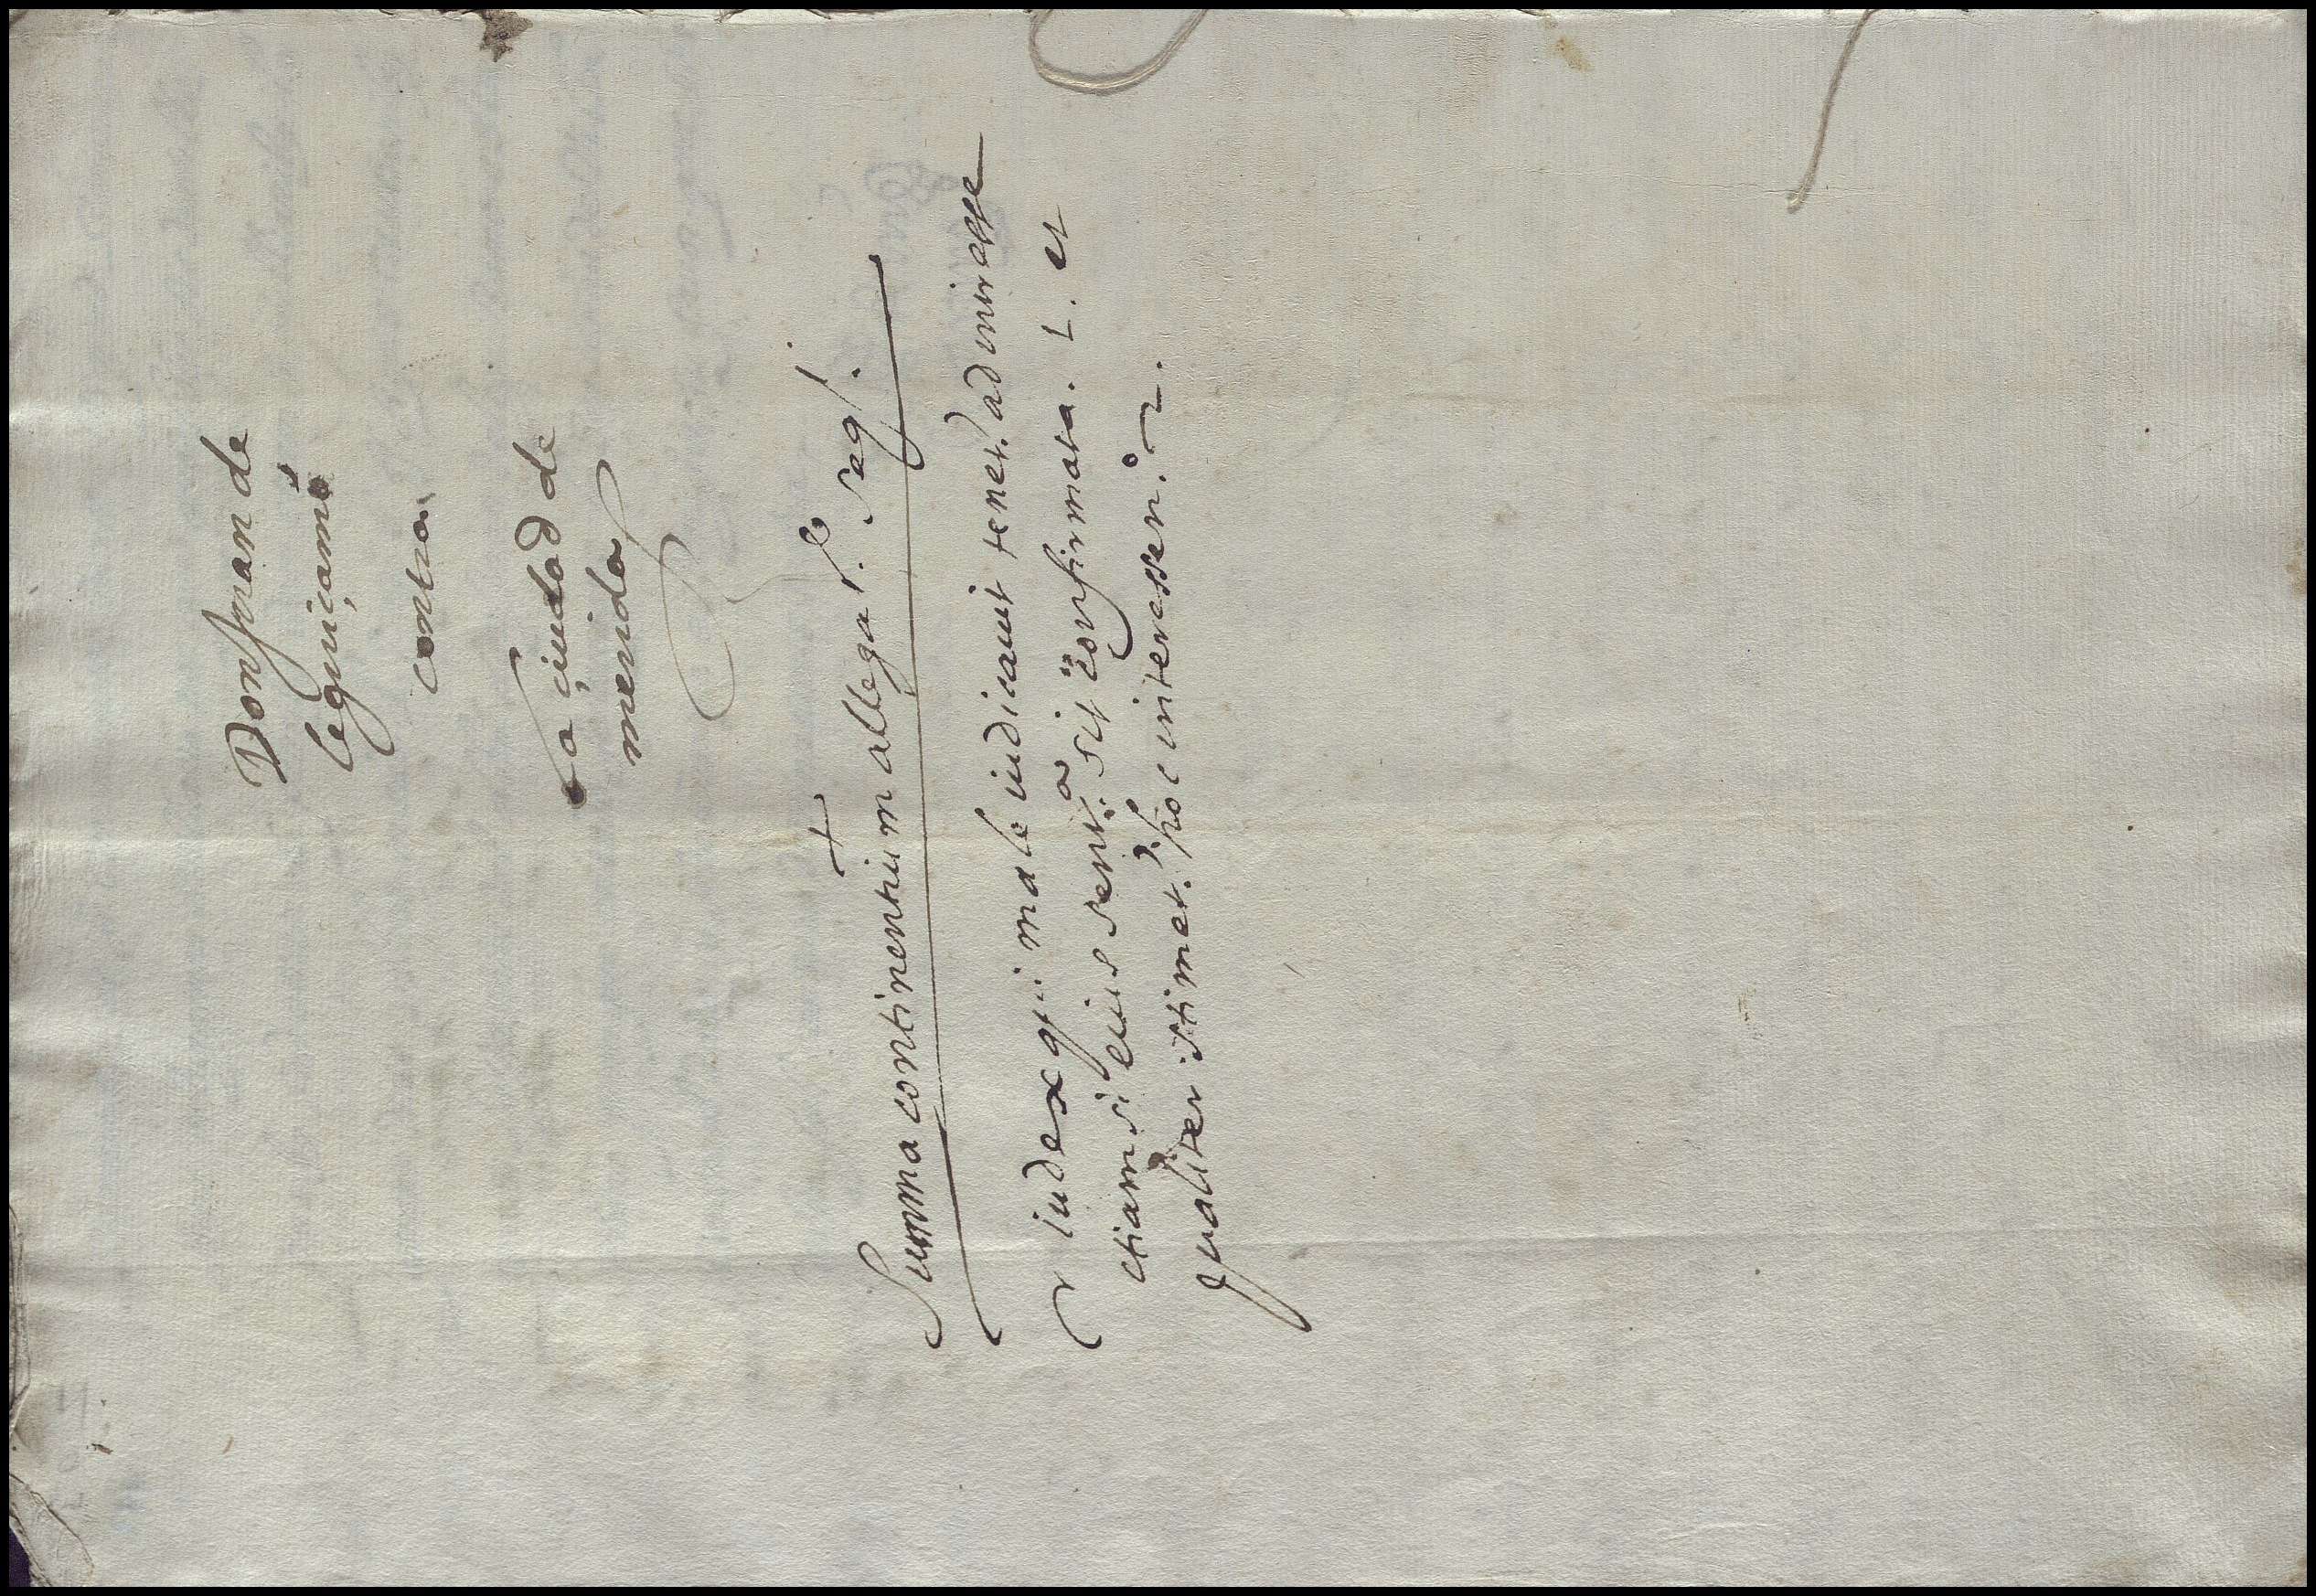 Don juan de
leguiçamo
contra
la çiudad de
merida
+
Summa continentium allegat. seq.
iudex qui male iudicauit tenet. ad interesse
etiam si eius sentª. sit confirmata. L. et
qualiter stimet. hoc interesse. n.º 2.